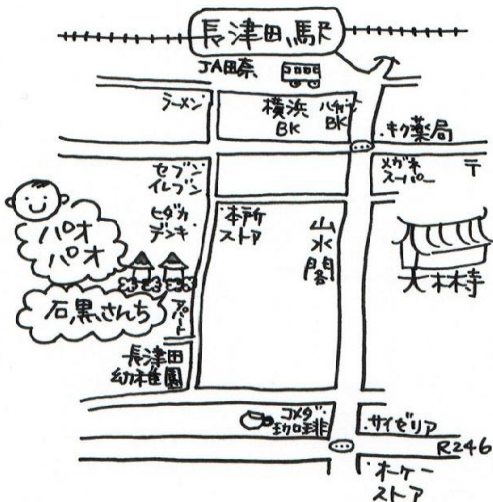 長津田駅
JA田奈
ラーメン
横浜
BK
ハマギン
BK
キク薬局
セブン
イレブン
メガネ
スーパー
〒
ヒダカ
デンキ
本所
ストア
山水
閣
大林寺
パオ
パオ
石黒さんち
アパート
長津田
幼稚園
コメダ
珈琲
サイゼリア
R246
オーケー
ストア